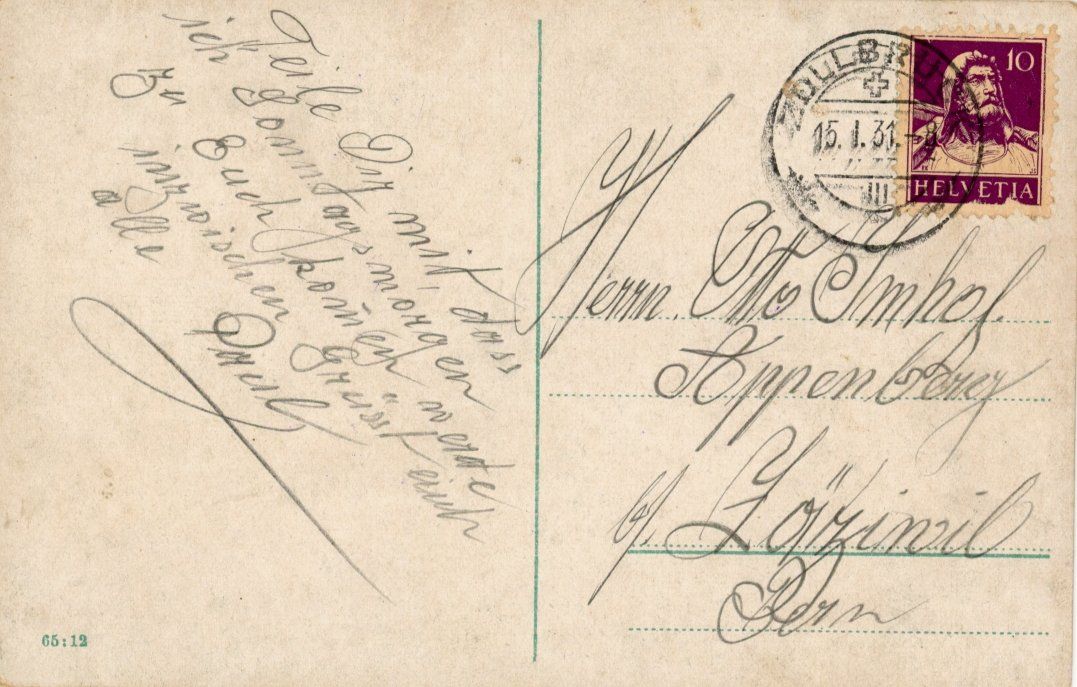 Teile Dir mit, dass
ich Sonntagsmorgen
Zu Euch kom̄en werde
inzwischen grüsst euch
alle Paul
65:12
ZOLLBRÜCK
15.I.31.-8
III
10
HELVETIA
Herrn. Otto Imhof.
Appenberg
b/ Zäziwil
Bern